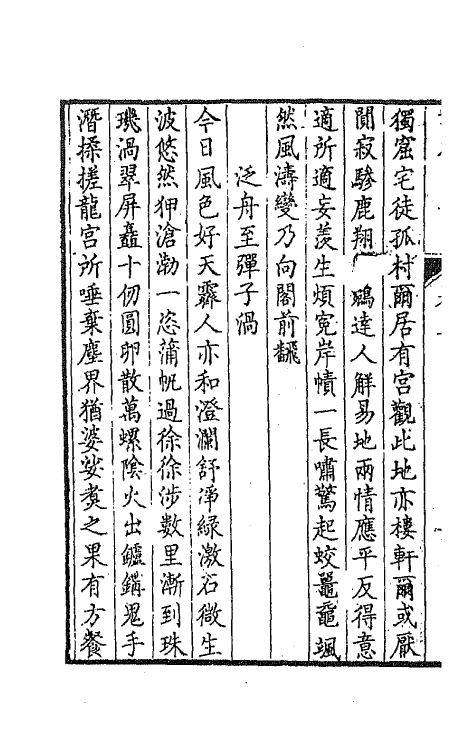 獨窟宅徒孤村爾居有宮觀此地亦樓軒爾或厭
閴寂驂鹿翔 鵾達人解易地兩情應平反得意
適所適妄羨生煩寃岸幘一長嘯驚起蛟鼉黿颯
然風濤變乃向閣前飜
泛舟至彈子渦
今日風色好天霽人亦和澄瀾舒淨綠激石微生
波悠然狎滄渤一恣蒲帆過徐徐涉数里漸到珠
璣渦翠屏矗十仞圓卵散萬螺陰火出鑪鏽鬼手
潛搡搓龍宮所唾棄塵界猶婆娑煑之果有方餐